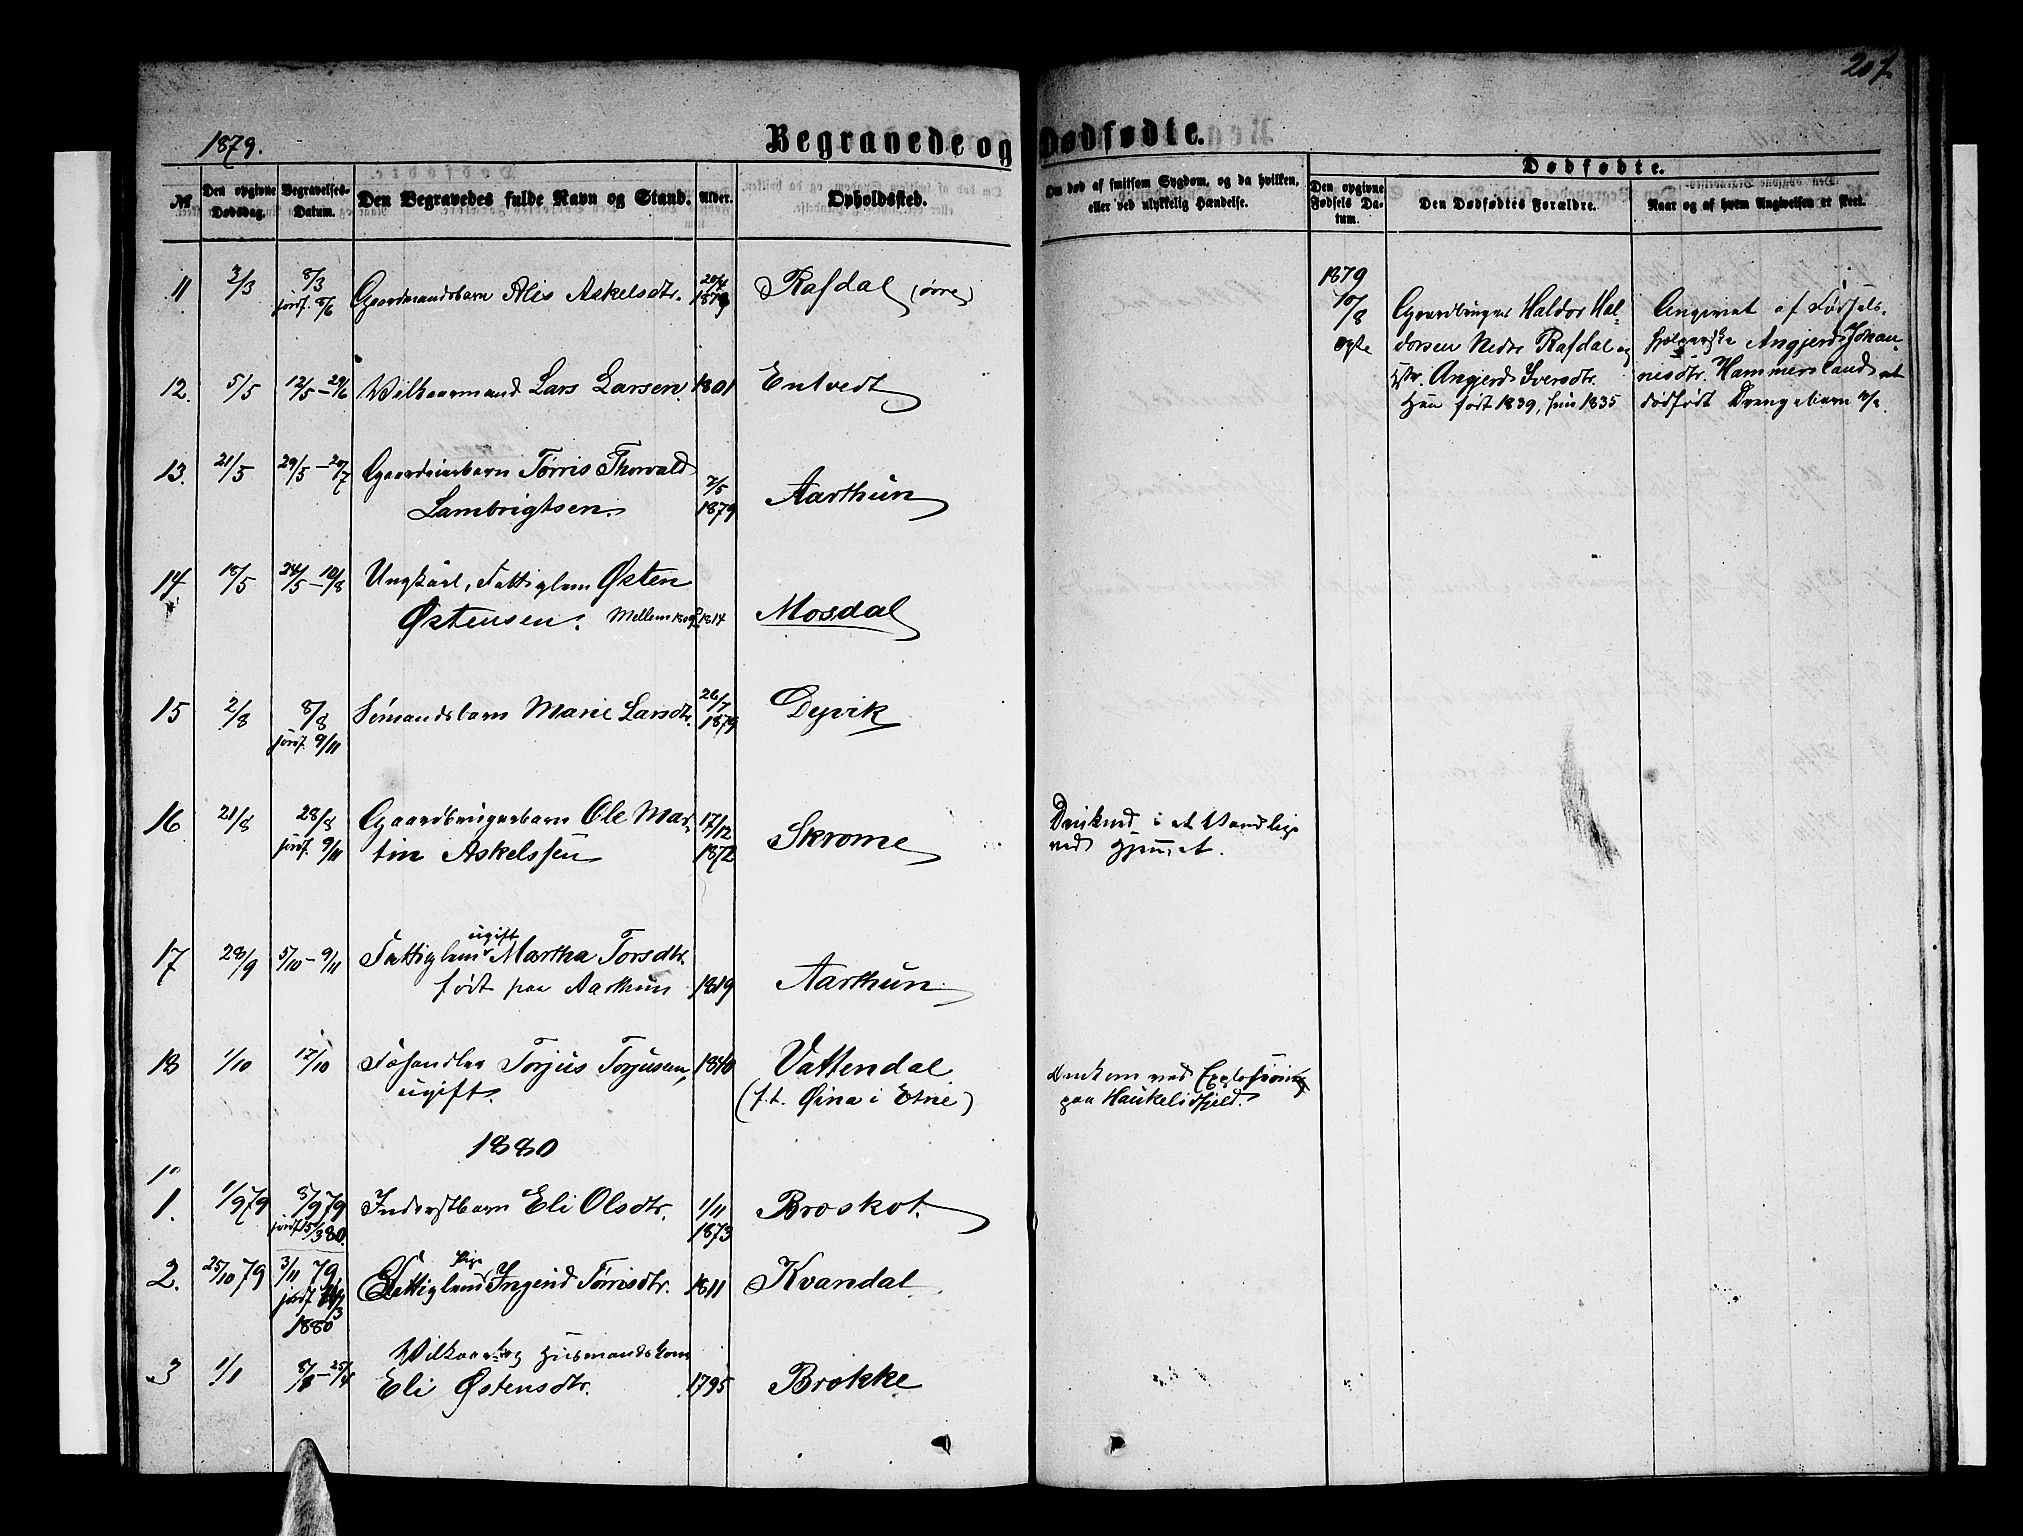 207.
1879.
Begravede og Dødfødte.
№
Den opgivne Dødsdag.
Begravelses-Datum.
Den Begravedes fulde Navn og Stand.
Alder.
Opholdssted.
Om død af smitsom Sygdom, og da hvilken,
eller ved ulykkelig Hændelse.
Dødfødte.
Den opgivne Fødsels Datum.
Den Dødfødtes Forældre.
Naar og af hvem Angivelsen er skeet.
11 3/3 8/3 jordf. 8/6 Gaardmandsbarn Alis Askelsdtr. 1879 Rafdal (øvre)
12. 5/5 12/5 – 29/6 Wilkaarmand Lars Larsen 1801 Entvedt
13. 21/5 29/5 – 20/7 Tørris Thorvald
Lambrigtsen. 7/5 1879 Aarthun
14 18/5 24/5 – 10/8 Ungkarl, Fattiglem Østen
Østensen. Mellem 1809 & 1814 Mosdal
15 2/8 8/8 jordf. 9/11 Sømandsbarn Marie Larsdtr. 26/7 1879 Dyvik
16 21/8 28/8 jordf. 9/11 Gaardbrugerbarn Ole Mar-
tin Askelssen 17/12 1872 Skrome
Drukned i et Vandlige
ved
17 28/9 5/10 – 9/11 Fattiglem ugift Martha Torsdtr.
født paa Aarthun 1819 Aarthun
18 1/10 17/10 Føhandler Torjus Torjusen,
ugift. 1840 Vattendal
(f.t. Øina i Etne)
Omkom ved Explosion
paa Haukelidfjeld.
1880
1. 1/9 79 8/9 79 jordf. 15/3 80. Inderstbarn Eli Olsdtr. 1/11 1873 Broskot.
2. 25/10 79 3/11 79 jordf. 1880 Pige Fattiglem Ingerid Tørrisdtr. 1811 Kvandal
3 1/1 8/1 – 25/4 Wilkaar- og Husmandskone
Eli Østensdtr. 1795 Brokke
1879
10/8
Gaardbruger Haldor Hal-
dorsen Nedre Rafdal og
Hstr. Angjerd Iversdtr.
Han født 1839, hun 1835
Angivet af Fødsels-
hjælperske Angjerd Johan-
nisdtr. Hammersland
dødfødt Drengebarn